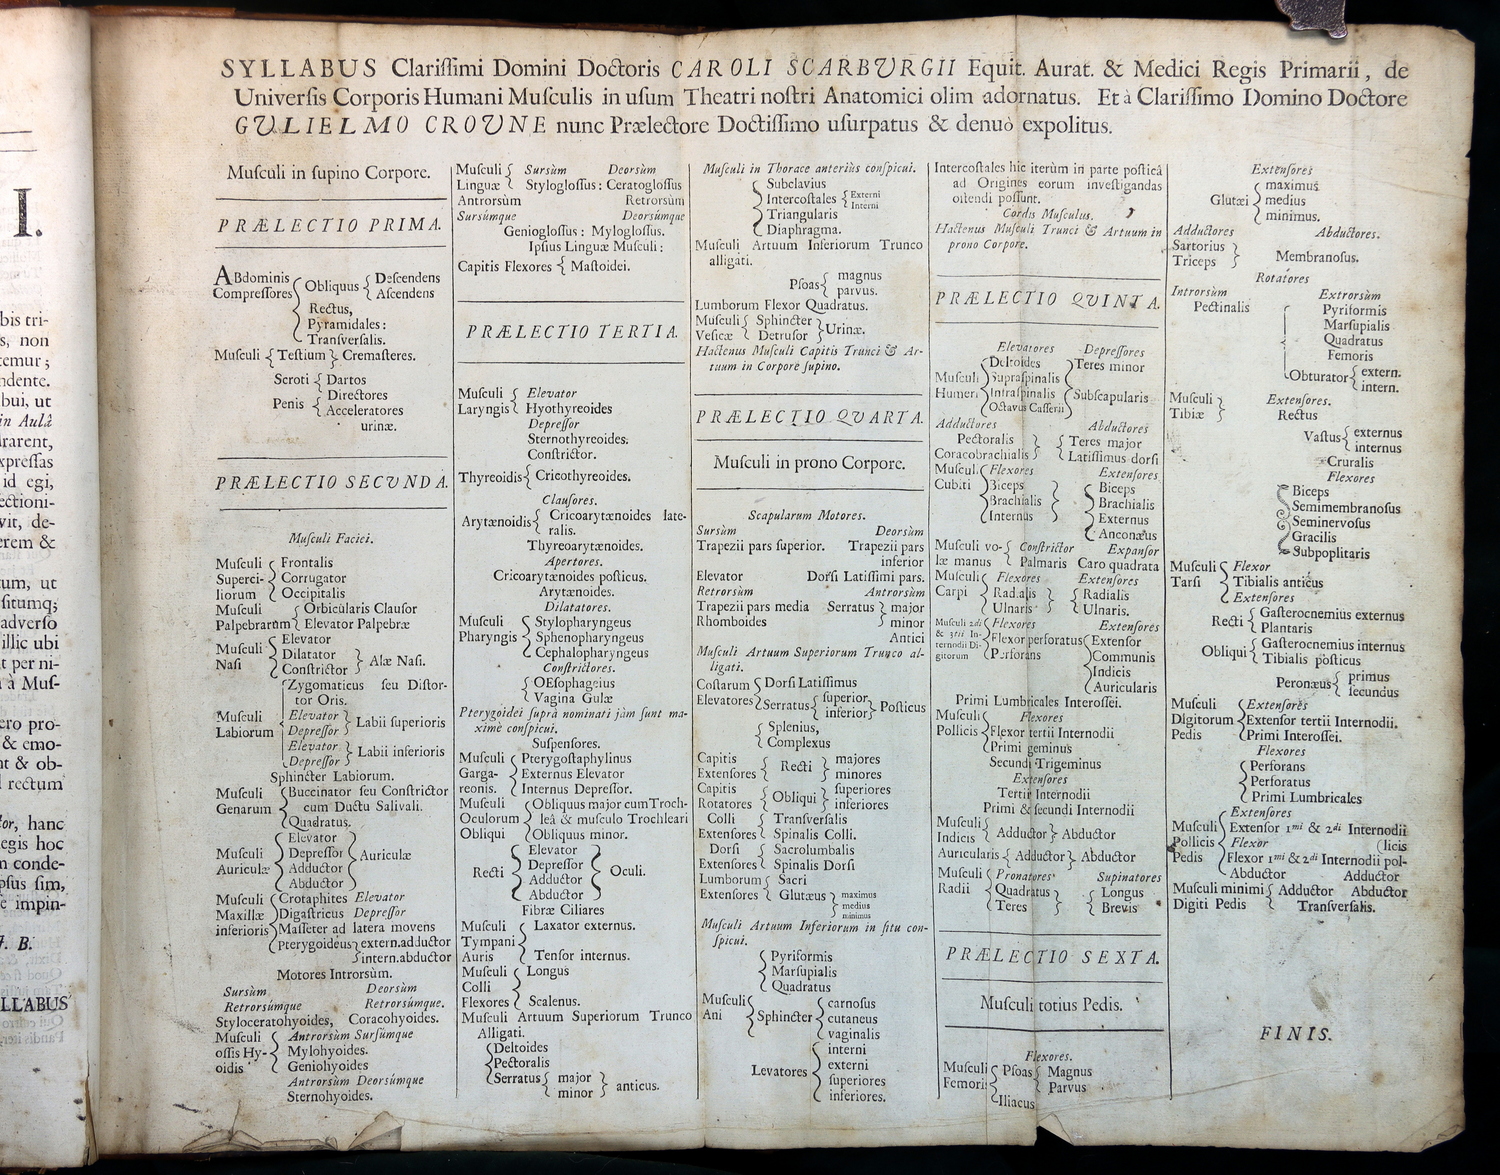 SYLLABUS Clarissimi Domini Doctoris CAROLI SCARBURGII Equit. Aurat. & Medici Regis Primarii, de
Universis Corporis Humani Musculis in usum Theatri nostri Anatomici olim adornatus. Et à Clarissimo Domino Doctore
GULIELMO CROUNE nunc Prælectore Doctissimo usurpatus & denuò expolitus.
Musculi in supino Corpore.
PRÆLECTIO PRIMA.
ABdominis Compressores { Obliquus { Descendens
Ascendens
Rectus,
Pyramidales:
Transversalis.
Musculi { Testium } Cremasteres.
Scroti { Dartos
Penis { Directores
Acceleratores
urinæ.
PRÆLECTIO SECUNDA.
Musculi Faciei.
Musculi Superciliorum { Frontalis
Corrugator
Occipitalis
Musculi Palpebrarum { Orbicularis Clausor
Elevator Palpebræ
Musculi Nasi { Elevator
Dilatator
Constrictor } Alæ Nasi.
Musculi Labiorum { Zygomaticus seu Distor-
tor Oris.
Elevator
Depressor } Labii superioris
Elevator
Depressor } Labii inferioris
Sphincter Labiorum.
Musculi Genarum { Buccinator seu Constrictor
cum Ductu Salivali.
Quadratus.
Musculi Auriculæ { Elevator
Depressor
Adductor
Abductor } Auriculæ
Musculi Maxillæ inferioris { Crotaphites Elevator
Digastricus Depressor
Masseter ad latera movens
Pterygoideus } extern. adductor
intern. abductor
Motores Introrsùm.
Sursùm Deorsùm
Retrorsúmque Retrorsúmque.
Styloceratohyoides, Coracohyoides.
Musculi ossis Hy-oidis { Antrorsùm Sursúmque
Mylohyoides.
Geniohyoides
Antrorsùm Deorsúmque
Sternohyoides.
Musculi Linguæ { Sursùm Deorsùm
Styloglossus: Ceratoglossus
Antrorsùm Retrorsùm
Sursúmque Deorsúmque
Genioglossus: Myloglossus.
Ipsius Linguæ Musculi:
Capitis Flexores { Mastoidei.
PRÆLECTIO TERTIA.
Musculi Laryngis { Elevator
Hyothyreoides
Depressor
Sternothyreoides.
Constrictor.
Thyreoidis { Cricothyreoides.
Clausores.
Arytænoidis { Cricoarytænoides late-
ralis.
Thyreoarytænoides.
Apertores.
Cricoarytænoides posticus.
Arytænoides.
Dilatatores.
Musculi Pharyngis { Stylopharyngeus
Sphenopharyngeus
Cephalopharyngeus
Constrictores.
OEsophageius
Vagina Gulæ
Pterygoidei suprà nominati jàm sunt ma-
ximè conspicui.
Suspensores.
Musculi Garga-reonis. { Pterygostaphylinus
Externus Elevator
Internus Depressor.
Musculi Oculorum Obliqui { Obliquus major cum Troch-
leâ & musculo Trochleari
Obliquus minor.
Recti { Elevator
Depressor
Adductor
Abductor } Oculi.
Fibræ Ciliares
Musculi Tympani Auris { Laxator externus.
Tensor internus.
Musculi Colli Flexores { Longus
Scalenus.
Musculi Artuum Superiorum Trunco
Alligati.
Deltoides
Pectoralis
Serratus { major
minor } anticus.
Musculi in Thorace anteriùs conspicui.
Subclavius
Intercostales { Externi
Interni
Triangularis
Diaphragma.
Musculi Artuum Inferiorum Trunco
alligati.
Psoas { magnus
parvus.
Lumborum Flexor Quadratus.
Musculi Vesicæ { Sphincter
Detrusor } Urinæ.
Hactenus Musculi Capitis Trunci & Ar-
tuum in Corpore supino.
PRÆLECTIO QUARTA.
Musculi in prono Corpore.
Scapularum Motores.
Sursùm Deorsùm
Trapezii pars superior. Trapezii pars
inferior
Elevator Dorsi Latissimi pars.
Retrorsùm Antrorsùm
Trapezii pars media Serratus } major
Rhomboides minor
Antici
Musculi Artuum Superiorum Trunco al-
ligati.
Costarum Elevatores { Dorsi Latissimus
Serratus { superior
inferior } Posticus
Splenius,
Complexus
Capitis Extensores { Recti } majores
minores
Capitis Rotatores { Obliqui { superiores
inferiores
Colli Extensores { Transversalis
Spinalis Colli.
Dorsi Extensores { Sacrolumbalis
Spinalis Dorsi
Lumborum Extensores { Sacri
Glutæus } maximus
medius
minimus
Musculi Artuum Inferiorum in situ con-
spicui.
Pyriformis
Marsupialis
Quadratus
Musculi Ani { Sphincter { carnosus
cutaneus
vaginalis
Levatores { interni
externi
superiores
inferiores.
Intercostales hìc iterùm in parte posticâ
ad Origines eorum investigandas
ostendi possunt.
Cordis Musculus.
Hactenus Musculi Trunci & Artuum in
prono Corpore.
PRÆLECTIO QUINTA.
Elevatores Depressores
Musculi Humeri { Deltoides Teres minor
Supraspinalis
Infraspinalis Subscapularis
Octavus Casserii
Adductores Abductores
Pectoralis Teres major
Coracobrachialis Latissimus dorsi
Muscul. Cubiti { Flexores Extensores
Biceps Biceps
Brachialis Brachialis
Internus Externus
Anconæus
Musculi vo-læ manus { Constrictor Expansor
Palmaris Caro quadrata
Musculi Carpi { Flexores Extensores
Radialis Radialis
Ulnaris Ulnaris.
Musculi 2di & 3tii In-ternodii Di-gitorum { Flexores Extensores
Flexor perforatus Extensor
Perforans Communis
Indicis
Auricularis
Primi Lumbricales Interossei.
Musculi Pollicis { Flexores
Flexor tertii Internodii
Primi geminus
Secundi Trigeminus
Extensores
Tertii Internodii
Primi & secundi Internodii
Musculi Indicis { Adductor } Abductor
Auricularis { Adductor } Abductor
Musculi Radii { Pronatores Supinatores
Quadratus Longus
Teres Brevis
PRÆLECTIO SEXTA.
Musculi totius Pedis.
Flexores.
Musculi Femoris { Psoas { Magnus
Parvus
Iliacus
Extensores
Glutæi { maximus
medius
minimus.
Adductores Abductores.
Sartorius
Triceps } Membranosus.
Rotatores
Introrsùm Extrorsùm
Pectinalis Pyriformis
Marsupialis
Quadratus
Femoris
Obturator { extern.
intern.
Musculi Tibiæ } Extensores.
Rectus
Vastus { externus
internus
Cruralis
Flexores
Biceps
Semimembranosus
Seminervosus
Gracilis
Subpoplitaris
Musculi Tarsi { Flexor
Tibialis anticus
Extensores
Recti { Gasterocnemius externus
Plantaris
Obliqui { Gasterocnemius internus
Tibialis posticus
Peronæus { primus
secundus
Musculi Digitorum Pedis { Extensores
Extensor tertii Internodii.
Primi Interossei.
Flexores
Perforans
Perforatus
Primi Lumbricales
Musculi Pollicis Pedis { Extensores
Extensor 1mi & 2di Internodii
Flexor (licis
Flexor 1mi & 2di Internodii pol-
Abductor Adductor
Musculi minimi Digiti Pedis { Adductor Abductor
Transversalis.
FINIS.
I.
bis tri-
s, non
temur;
ndente.
bui, ut
in Aulâ
rarent,
xpressas
id egi,
ectioni-
vit, de-
erem &
tum, ut
situmq;
adverso
illic ubi
t per ni-
à Mus-
ero pro-
& emo-
nt & ob-
rectum
tor, hanc
egis hoc
n conde-
psus sim,
e impin-
J. B.
LLABUS